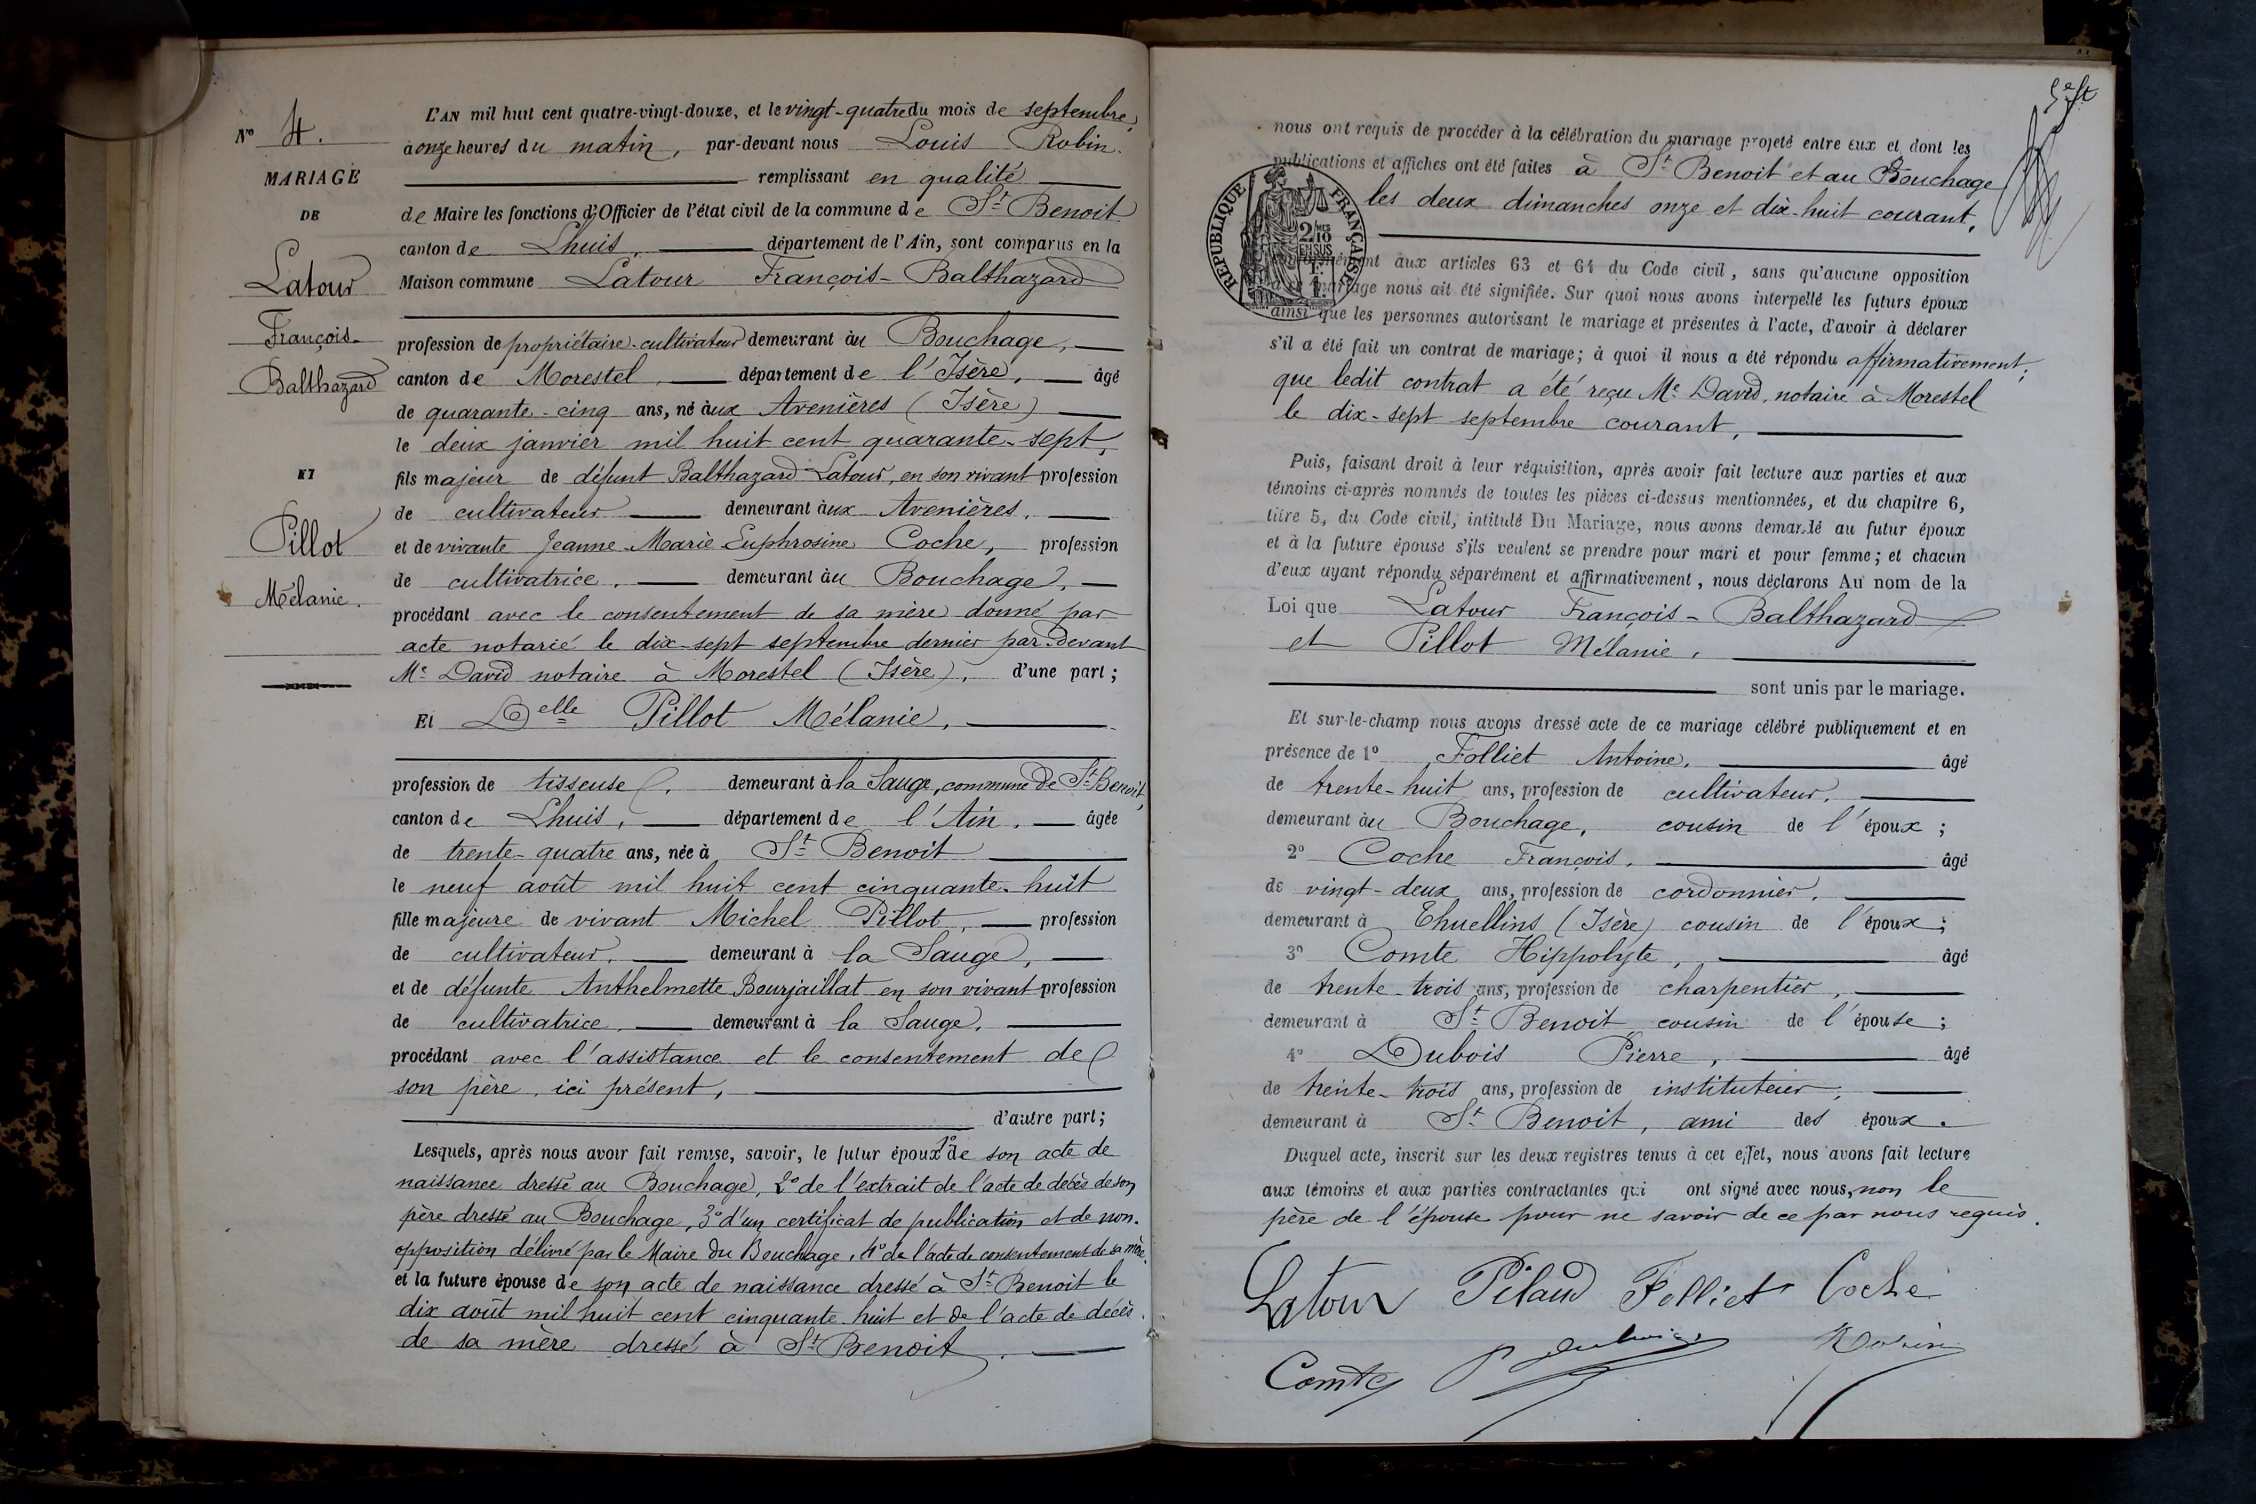 N° 4.
MARIAGE
DE
Latour
François-
Balthazard
ET
Pillot
Mélanie.
L'AN mil huit cent quatre-vingt-douze, et le vingt-quatre du mois de septembre,
à onze heures du matin, par-devant nous Louis Robin.
remplissant en qualité
de Maire les fonctions d'Officier de l'état civil de la commune de St Benoit
canton de Lhuis, département de l'Ain, sont comparus en la
Maison commune Latour François-Balthazard
profession de propriétaire-cultivateur demeurant au Bouchage,
canton de Morestel, département de l'Isère, âgé
de quarante-cinq ans, né aux Avenières (Isère)
le deux janvier mil huit cent quarante-sept,
fils majeur de défunt Balthazard Latour, en son vivant profession
de cultivateur demeurant aux Avenières.
et de vivante Jeanne-Marie Euphrosine Coche, profession
de cultivatrice. demeurant au Bouchage,
procédant avec le consentement de sa mère donné par
acte notarié le dix-sept septembre dernier par-devant
Me David notaire à Morestel (Isère), d'une part;
Et Delle Pillot Mélanie,
profession de tisseuse, demeurant à la Sauge, commune de St Benoit,
canton de Lhuis, département de l'Ain. âgée
de trente-quatre ans, née à St Benoit
le neuf août mil huit cent cinquante-huit
fille majeure de vivant Michel Pillot, profession
de cultivateur, demeurant à la Sauge,
et de défunte Anthelmette Bourjaillat en son vivant profession
de cultivatrice, demeurant à la Sauge,
procédant avec l'assistance et le consentement de
son père, ici présent,
d'autre part;
Lesquels, après nous avoir fait remise, savoir, le futur époux 1° de son acte de
naissance dressé au Bouchage, 2° de l'extrait de l'acte de décès de son
père dressé au Bouchage, 3° d'un certificat de publication et de non-
opposition délivré par le Maire du Bouchage, 4° de l'acte de consentement de sa mère.
et la future épouse de son acte de naissance dressé à St Benoit le
dix août mil huit cent cinquante-huit et de l'acte de décès
de sa mère dressé à St Benoit.
nous ont requis de procéder à la célébration du mariage projeté entre eux et dont les
publications et affiches ont été faites à St Benoit et au Bouchage
les deux dimanches onze et dix-huit courant,
RÉPUBLIQUE FRANÇAISE
2/10
EN SUS
conformément aux articles 63 et 64 du Code civil, sans qu'aucune opposition
à ce mariage nous ait été signifiée. Sur quoi nous avons interpellé les futurs époux
ainsi que les personnes autorisant le mariage et présentes à l'acte, d'avoir à déclarer
s'il a été fait un contrat de mariage; à quoi il nous a été répondu affirmativement;
que ledit contrat a été reçu Me David, notaire à Morestel
le dix-sept septembre courant,
Puis, faisant droit à leur réquisition, après avoir fait lecture aux parties et aux
témoins ci-après nommés de toutes les pièces ci-dessus mentionnées, et du chapitre 6,
titre 5, du Code civil, intitulé Du Mariage, nous avons demandé au futur époux
et à la future épouse s'ils veulent se prendre pour mari et pour femme; et chacun
d'eux ayant répondu séparément et affirmativement, nous déclarons Au nom de la
Loi que Latour François-Balthazard
et Pillot Mélanie,
sont unis par le mariage.
Et sur-le-champ nous avons dressé acte de ce mariage célébré publiquement et en
présence de 1° Folliet Antoine, âgé
de trente-huit ans, profession de cultivateur,
demeurant au Bouchage, cousin de l'époux;
2° Coche François, âgé
de vingt-deux ans, profession de cordonnier,
demeurant à Thuellins (Isère) cousin de l'époux;
3° Comte Hippolyte, âgé
de trente-trois ans, profession de charpentier,
demeurant à St Benoit cousin de l'épouse;
4° Dubois Pierre, âgé
de trente-trois ans, profession de instituteur,
demeurant à St Benoit, ami des époux.
Duquel acte, inscrit sur les deux registres tenus à cet effet, nous avons fait lecture
aux témoins et aux parties contractantes qui ont signé avec nous, non le
père de l'épouse pour ne savoir de ce par nous requis.
Latour Pilaud Folliet Coche
Comte P Dubois Robin